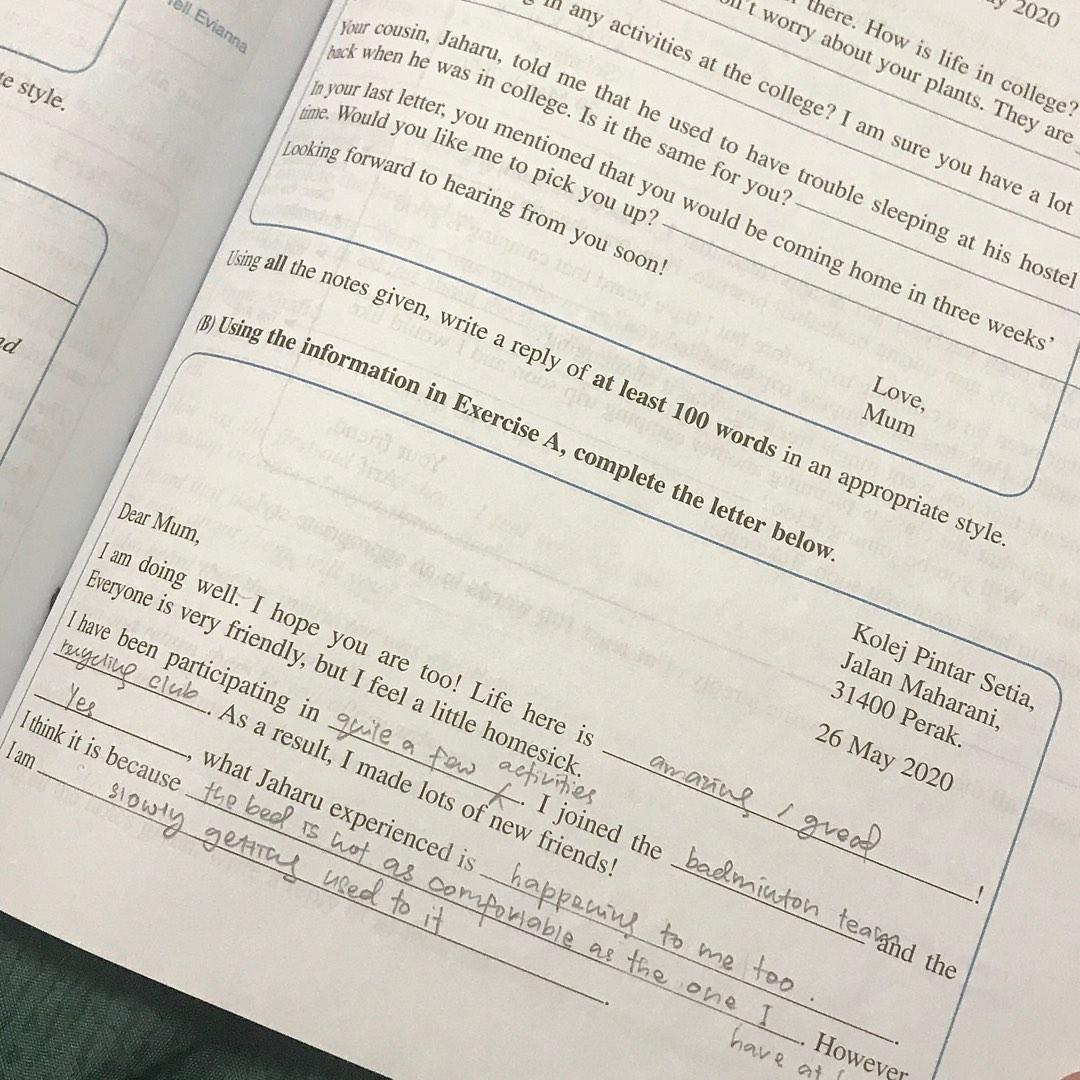 2020
there. How is life in college?
n't worry about your plants. They are
in any activities at the college? I am sure you have a lot
Your cousin, Jaharu, told me that he used to have trouble sleeping at his hostel
back when he was in college. Is it the same for you?
In your last letter, you mentioned that you would be coming home in three weeks'
time. Would you like me to pick you up?
Looking forward to hearing from you soon!
Love,
Mum
Using all the notes given, write a reply of at least 100 words in an appropriate style.
(B) Using the information in Exercise A, complete the letter below.
Kolej Pintar Setia,
Jalan Maharani,
31400 Perak.
26 May 2020
Dear Mum,
I am doing well. I hope you are too! Life here is amazing / great !
Everyone is very friendly, but I feel a little homesick.
I have been participating in quite a few activities. I joined the badminton team and the
recycling club. As a result, I made lots of new friends!
Yes, what Jaharu experienced is happening to me too.
I think it is because the bed is not as comfortable as the one I have at. However
I am slowly getting used to it.
Tell Evianna
te style.
nd